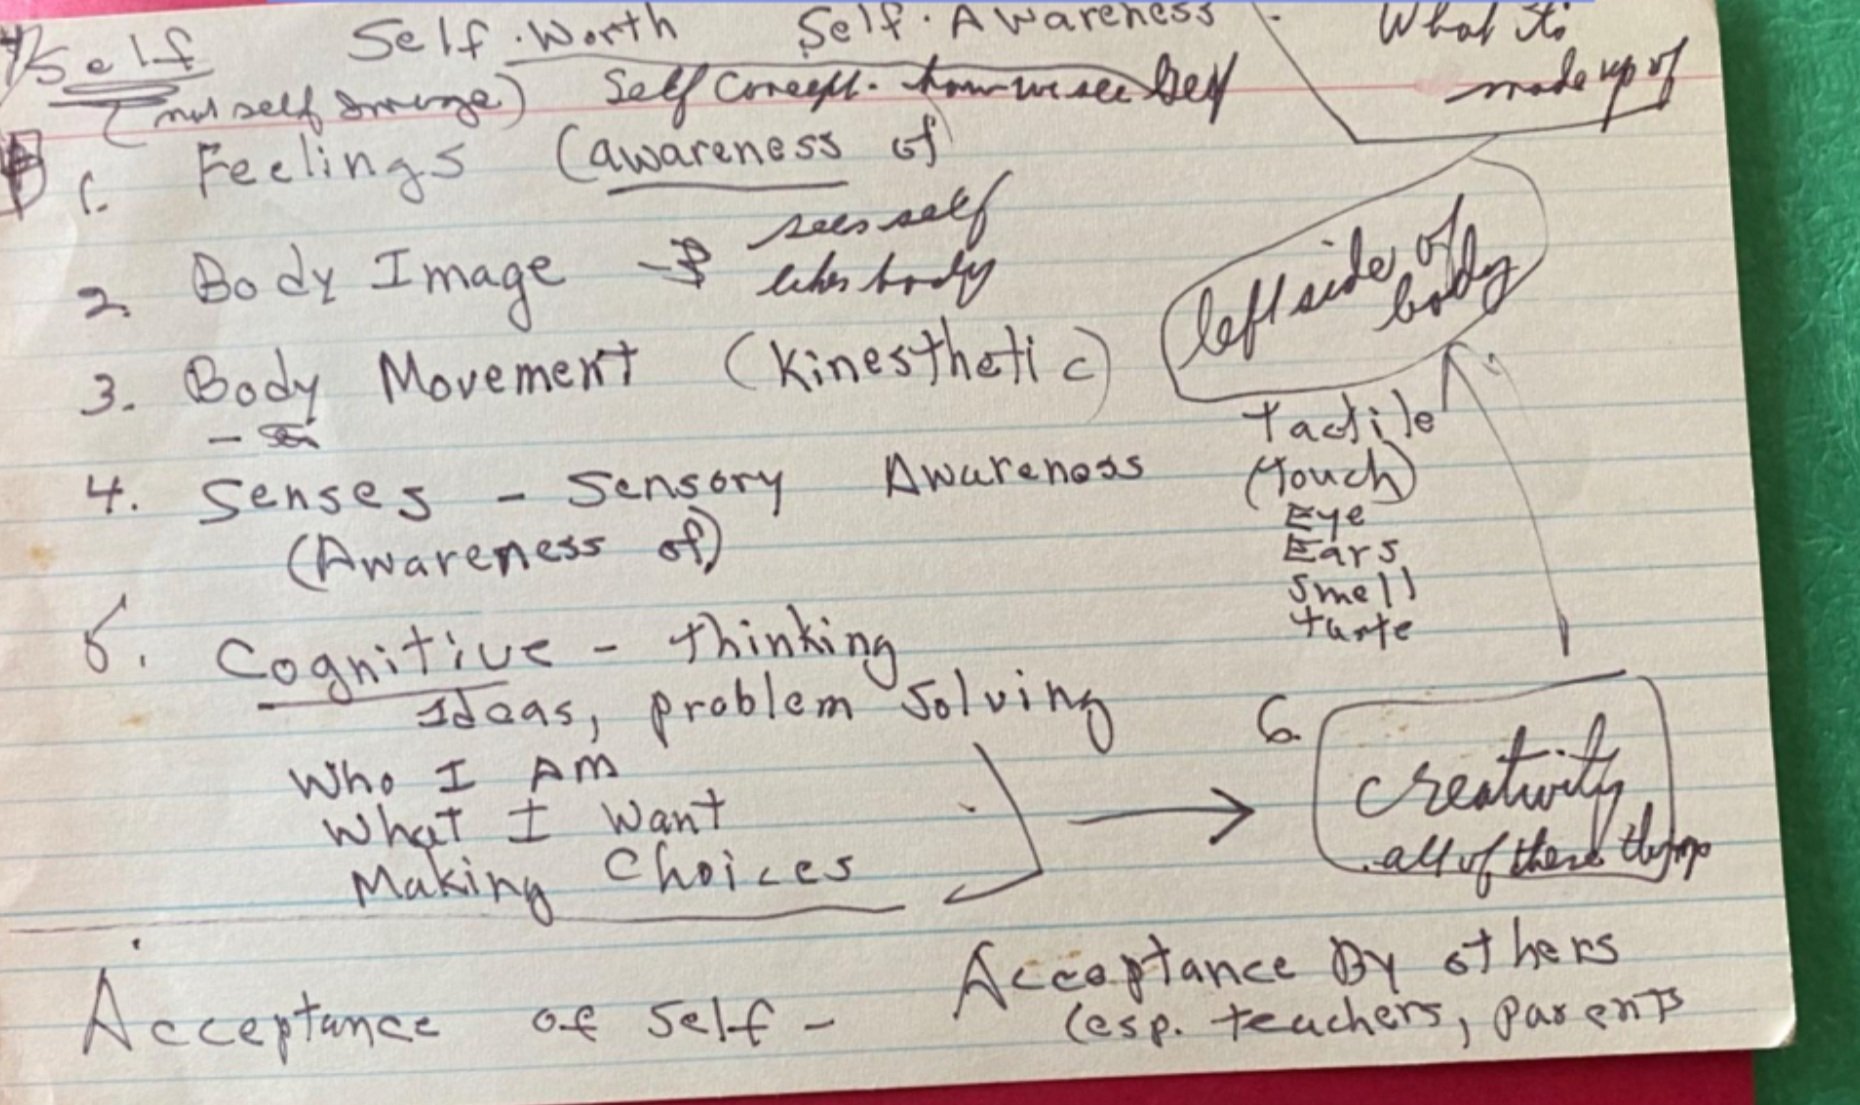 Self Self-Worth Self-Awareness
(not self image) Self Concept - how we see self
What it's
made up of
1. Feelings (awareness of)
2. Body Image → sees self
likes body
left side of
body
3. Body Movement (Kinesthetic)
4. Senses - Sensory Awareness
(Awareness of)
Tactile
(touch)
Eye
Ears
Smell
taste
5. Cognitive - thinking
Ideas, problem solving
Who I AM
What I Want
Making Choices
6. creativity
all of these things
Acceptance of Self - Acceptance By others
(esp. teachers, parents